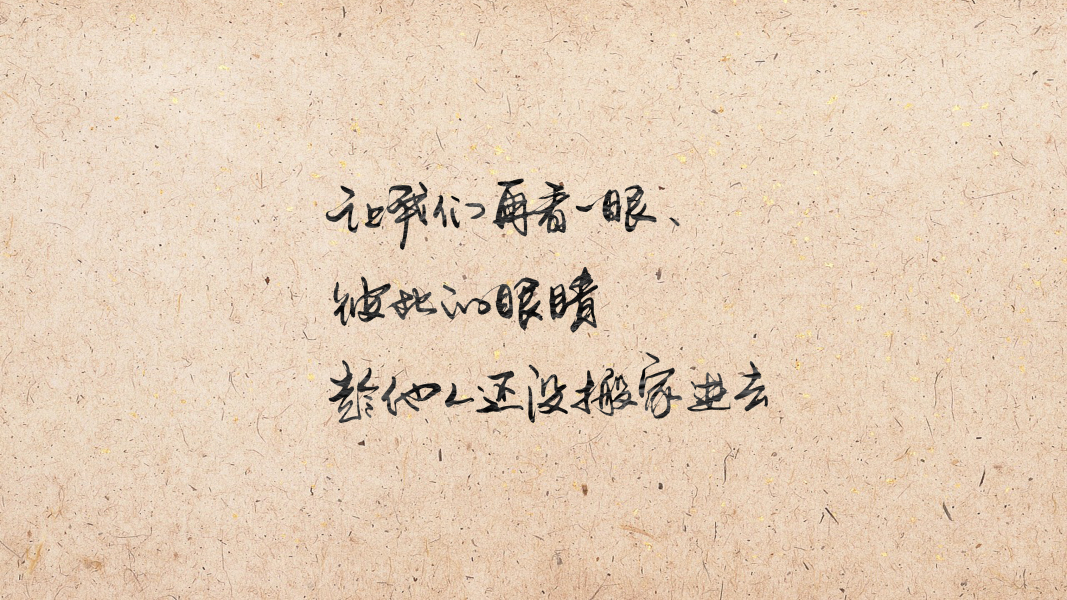 让我们再看一眼、
彼此的眼睛
趁他人还没搬家进去